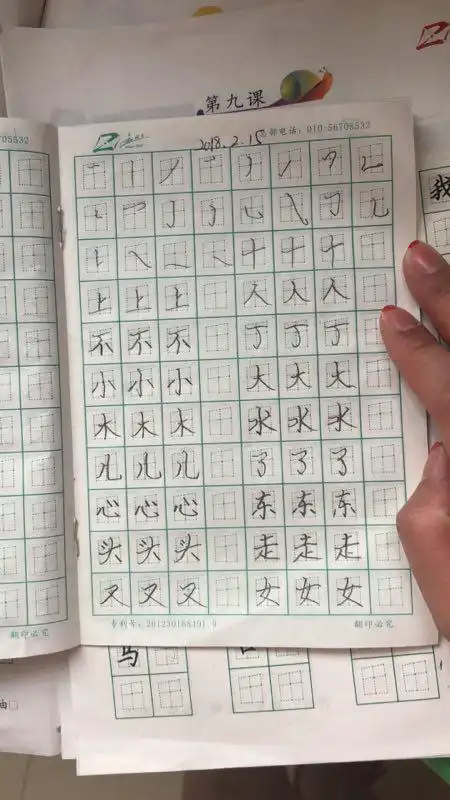 第九课
010-56705532
2018.2.15 部电话：010-56705532
十 十 十
上 上 上 入 入 入
不 不 不 丁 丁 丁
小 小 小 大 大 大
木 木 木 水 水 水
儿 儿 儿 了 了 了
心 心 心 东 东 东
头 头 头 走 走 走
又 又 又 女 女 女
专利号：201230188491.9 翻印必究
翻印必究
我